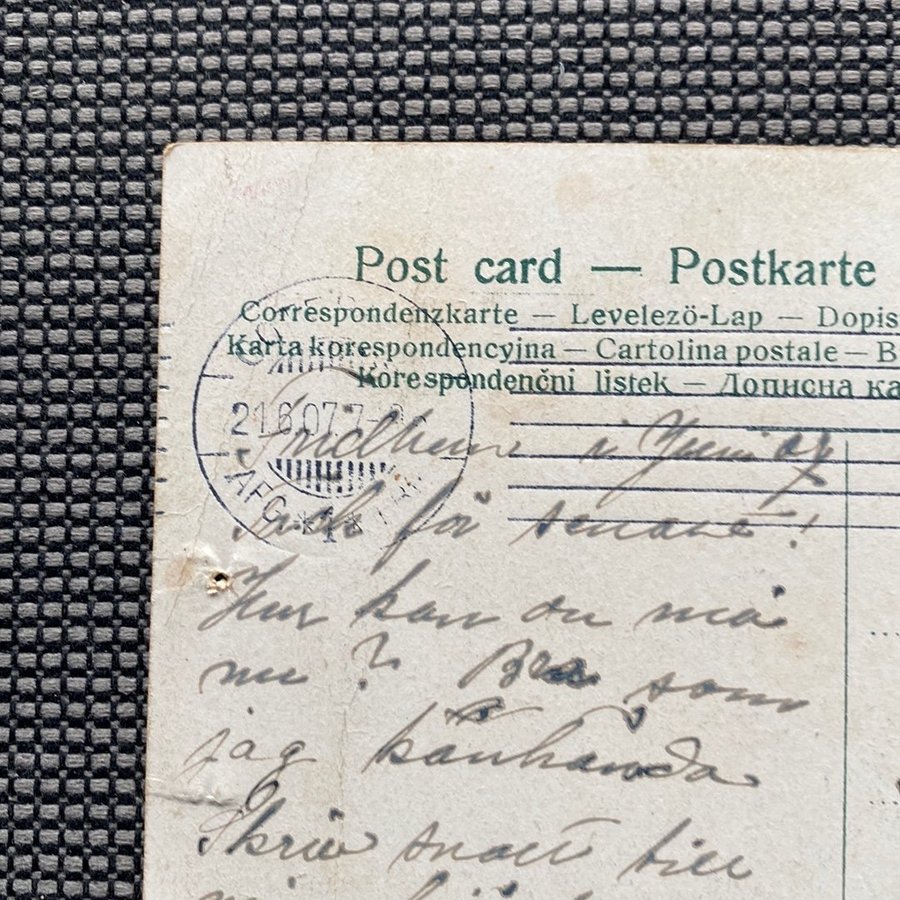 Post card — Postkarte
Correspondenzkarte — Levelezö-Lap — Dopis
Karta korespondencyjna — Cartolina postale — B
Korespondenčni listek — Дописна ка
21.6.07.7-
Fridhem i Juni 07
Tack för senare!
Hur kan du må
nu? Bra som
jag kanhända
Skriv snart till